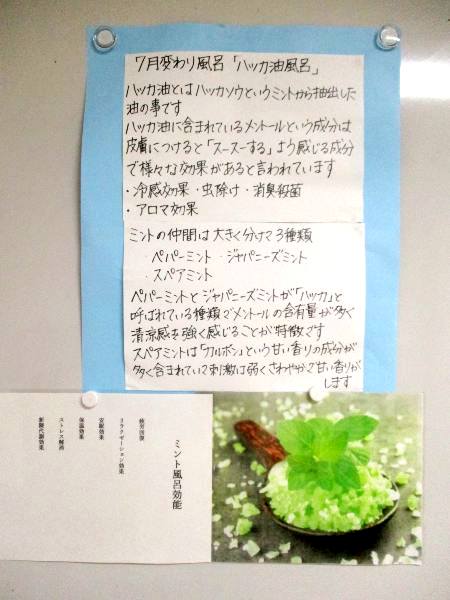 7月変わり風呂「ハッカ油風呂」
ハッカ油とはハッカソウというミントから抽出した
油の事です
ハッカ油に含まれているメントールという成分は
皮膚につけると「スースーする」よう感じる成分
で様々な効果があると言われています
・冷感効果・虫除け・消臭殺菌
・アロマ効果
ミントの仲間は大きく分けて3種類
・ペパーミント・ジャパニーズミント
・スペアミント
ペパーミントとジャパニーズミントが「ハッカ」と
呼ばれている種類でメントールの含有量が多く
清涼感を強く感じることが特徴です
スペアミントは「カルボン」という甘い香りの成分が
多く含まれていて刺激は弱くさわやかで甘い香りが
します
ミント風呂効能
疲労回復
リラクゼーション効果
安眠効果
保温効果
ストレス解消
新陳代謝効果